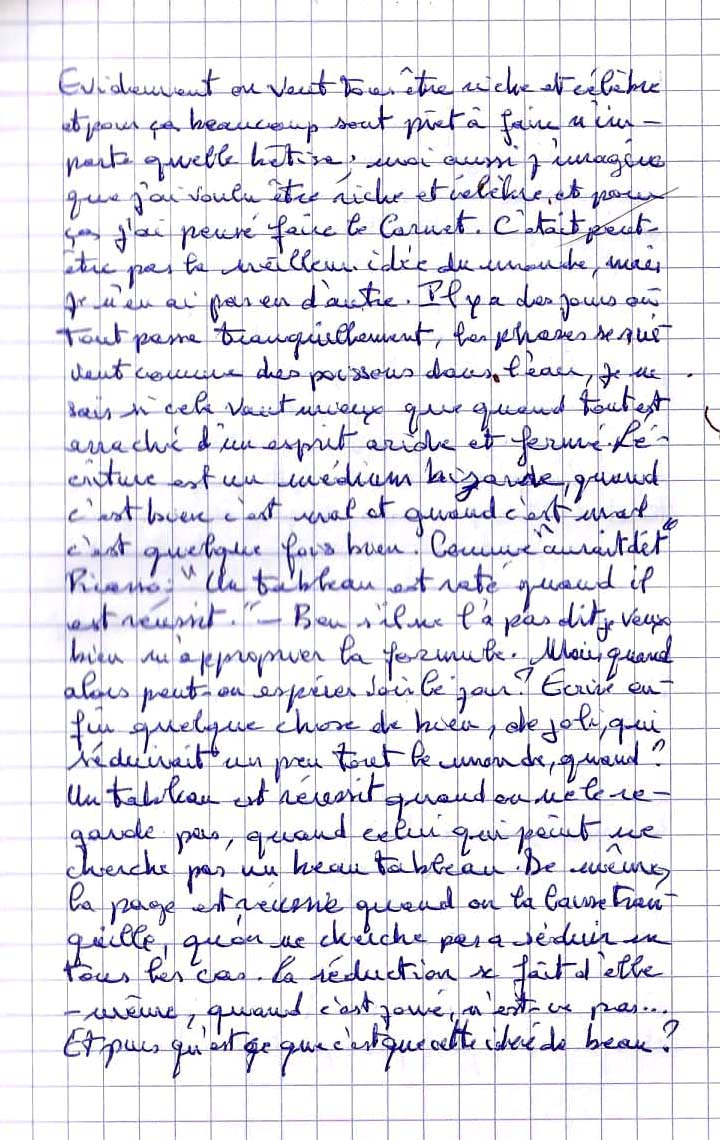 Evidement on veut tous être riche et célèbre
et pour ça beaucoup sont prêt à faire n'im-
porte quelle bêtise, moi aussi j'imagine
que j'ai voulu être riche et célèbre, et pour
ça j'ai pensé faire le Carnet. C'était peut-
être pas la meilleur idée du monde, mais
je n'en ai pas eu d'autre. Il y a des jours où
tout passe tranquillement, les phrases se sui-
vent comme des poissons dans l'eau, je ne
sais si cela vaut mieux que quand tout est
arraché d'un esprit aride et fermé. L'é-
criture est un médium bizarde, quand
c'est bien c'est mal et quand c'est mal
c'est quelque fois bien. Comme "aurait dit"
Picasso: "Un tableau est raté quand il
est réussit." - Bon s'il ne l'à pas dit je veux
bien m'approprier la formule. Mais quand
alors peut-on espérer voir le jour? Ecrire en-
fin quelque chose de bien, de joli, qui
séduirait un peu tout le monde, quand?
Un tableau est réussit quand on ne le re-
garde pas, quand celui qui peint ne
cherche pas un beau tableau. De même,
la page est réussie quand on la laisse tran-
quille, qu'on ne cherche pas a séduir en
tous les cas. La séduction se fait d'elle
-même, quand c'est joué, n'est-ce pas...
Et puis qu'est ce que c'est que cette idée de beau?